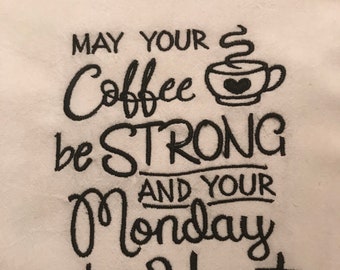 MAY YOUR
Coffee
be STRONG
AND YOUR
Monday